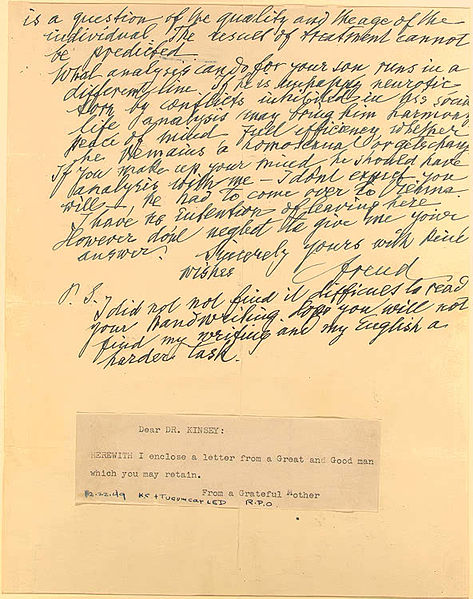 is a question of the quality and the age of the
individual. The result of treatment cannot
be predicted.
What analysis can do for your son runs in a
different line. If he is unhappy, neurotic,
torn by conflicts, inhibited in his social
life, analysis may bring him harmony,
peace of mind, full efficiency, whether
he remains a homosexual or gets changed.
If you make up your mind he should have
analysis with me — I don't expect you
will —, he has to come over to Vienna.
I have no intention of leaving here.
However don't neglect to give me your
answer.
Sincerely yours with kind
wishes
Freud
P. S.
I did not not find it difficult to read
your handwriting. Hope you will not
find my writing and my English a
harder task.
Dear DR. KINSEY:
HEREWITH I enclose a letter from a Great and Good man
which you may retain.
From a Grateful Mother
R.P.O.